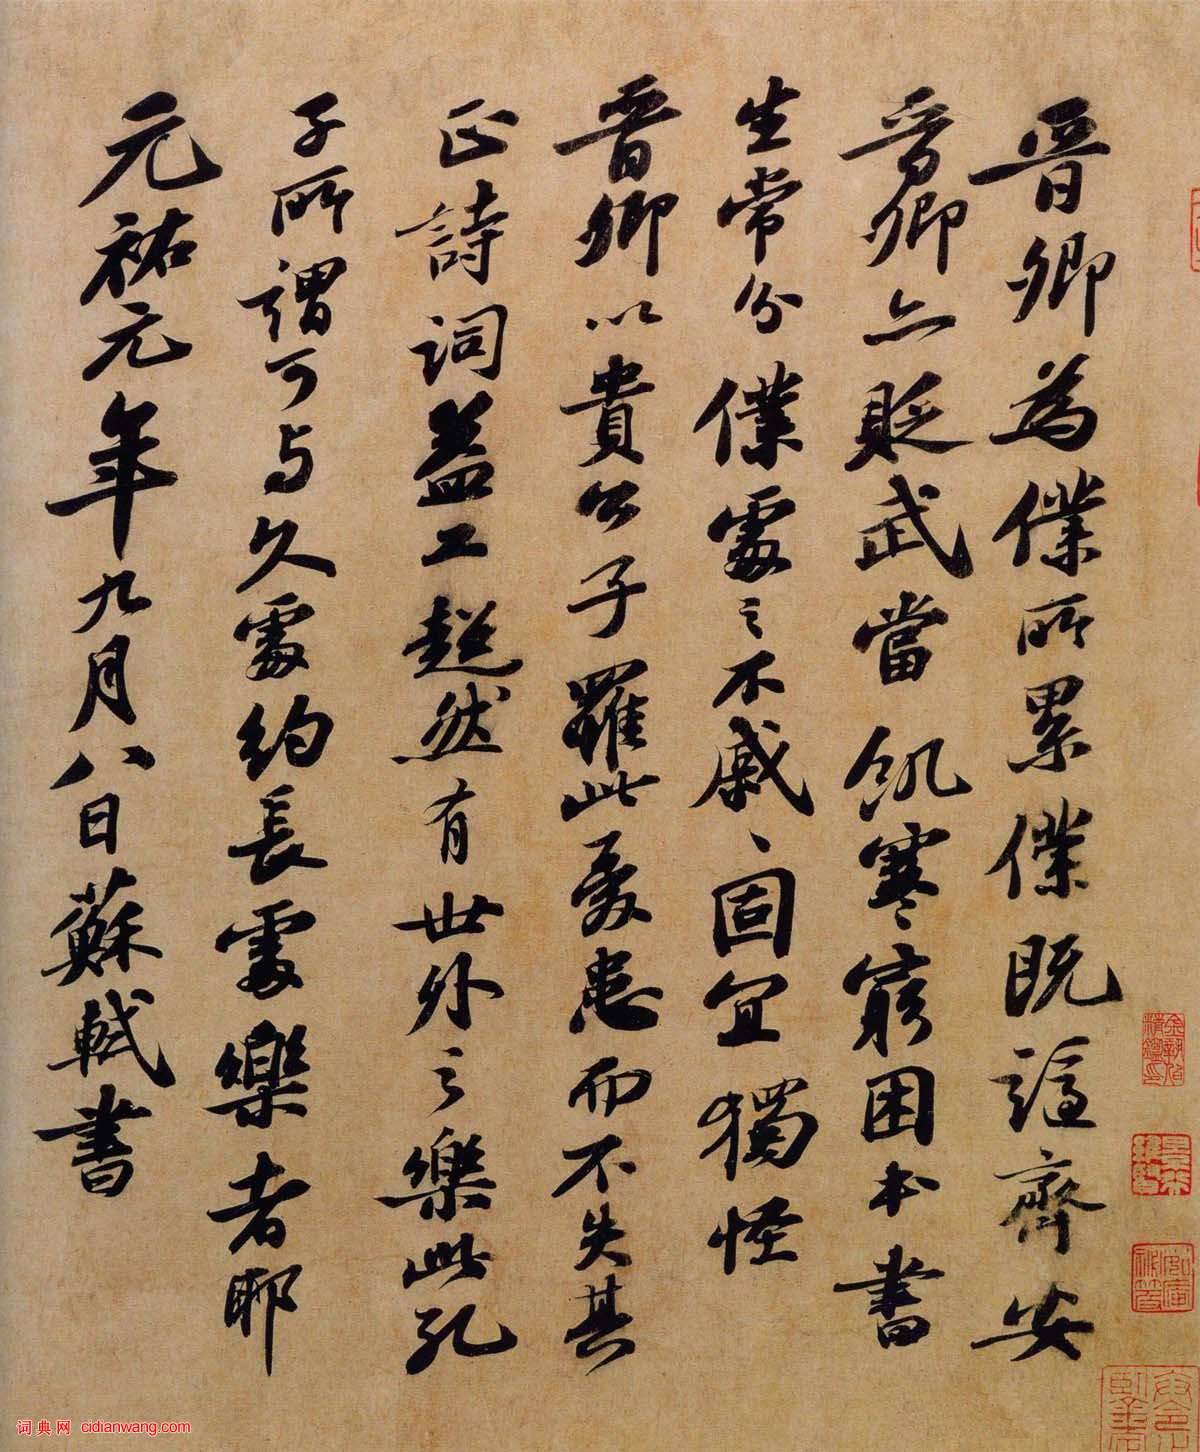 晉卿為僕所累僕既謫齊安
晉卿亦貶武當飢寒窮困本書
生常分僕處之不戚、固宜獨怪
晉卿以貴公子罹此憂患而不失其
正詩詞益工超然有世外之樂此孔
子所謂可与久處約長處樂者耶
元祐元年九月八日蘇軾書
词典网 cidianwang.com